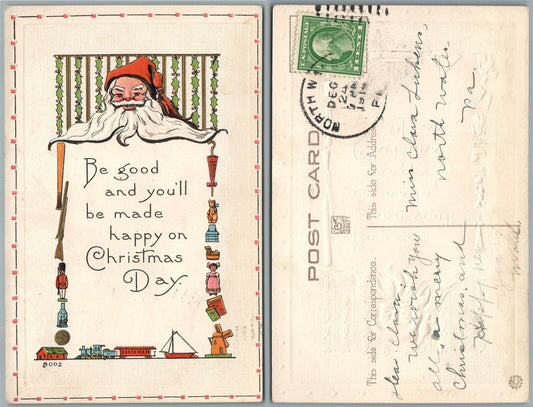 Be good
and you'll
be made
happy on
Christmas
Day.
B002
U.S. POSTAGE
NORTH W
DEC
24
1914
PA.
POST CARD
This side for Correspondence.
This side for Address
Dear Clara:
we wish you
all a merry
Christmas. and
Happy new
Miss Clara Lukens,
north Wales
Pa.